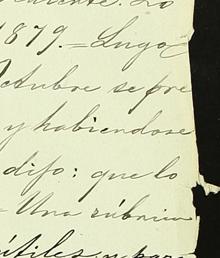 1879.=Lugo
Octubre se pre
y habiendose
dijo: que lo
=Una rúbrica
útiles y para